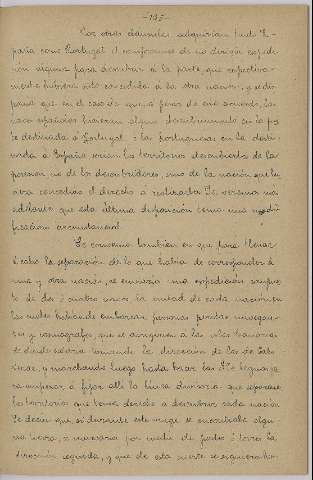 -105-
Por otras cláusulas adquirían tanto Es-
paña como Portugal el compromiso de no dirigir expedi-
ción alguna para descubrir a la parte que respectiva-
mente hubiera sido concedida á la otra nación, y se dis-
ponía que en el caso de que a pesar de este acuerdo, las
naves españolas hicieran algun descubrimiento en la par-
te destinada á Portugal ó las portuguesas en la desti-
nada á España serían los territorios descubiertos de la
posesion no de los descubridores, sino de la nación que le
otra concedido el derecho a realizarlo. Ya veremos mas
adelante que esta última disposición
Se convino tambien en que para llevar
á cabo la separación de lo que había de corresponder á
una y otra nación, se enviaría una expedición compues-
ta de dos ó cuatro naves la mitad de cada nación en
las cuales habían de embarcar personas peritas navegan-
tes y cosmógrafos, que se dirigieran á las islas Canarias
desde donde tomando la dirección de las de Cabo
Verde, y marchando luego hasta hacer las 370 leguas pa-
ra empezar á fijar allí la línea divisoria que separase
los territorios que había derecho a descubrir cada nación
Es decir que si durante este viaje se encontraba algu-
na tierra, es necesario por medio de postes ó torres la
dirección seguida, y que de esta suerte se